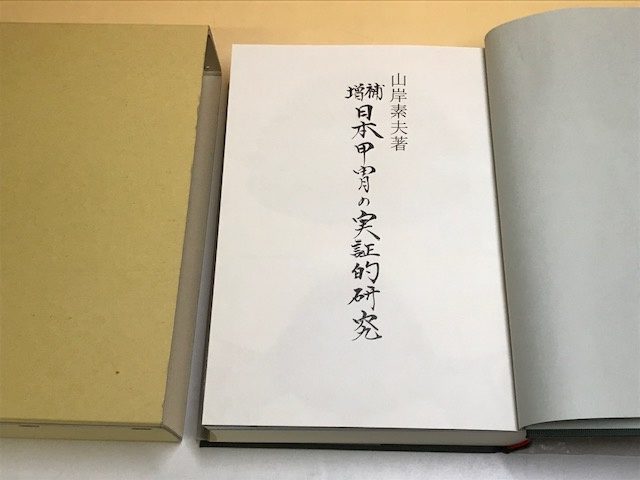 山岸素夫著
増補 日本甲冑の実証的研究